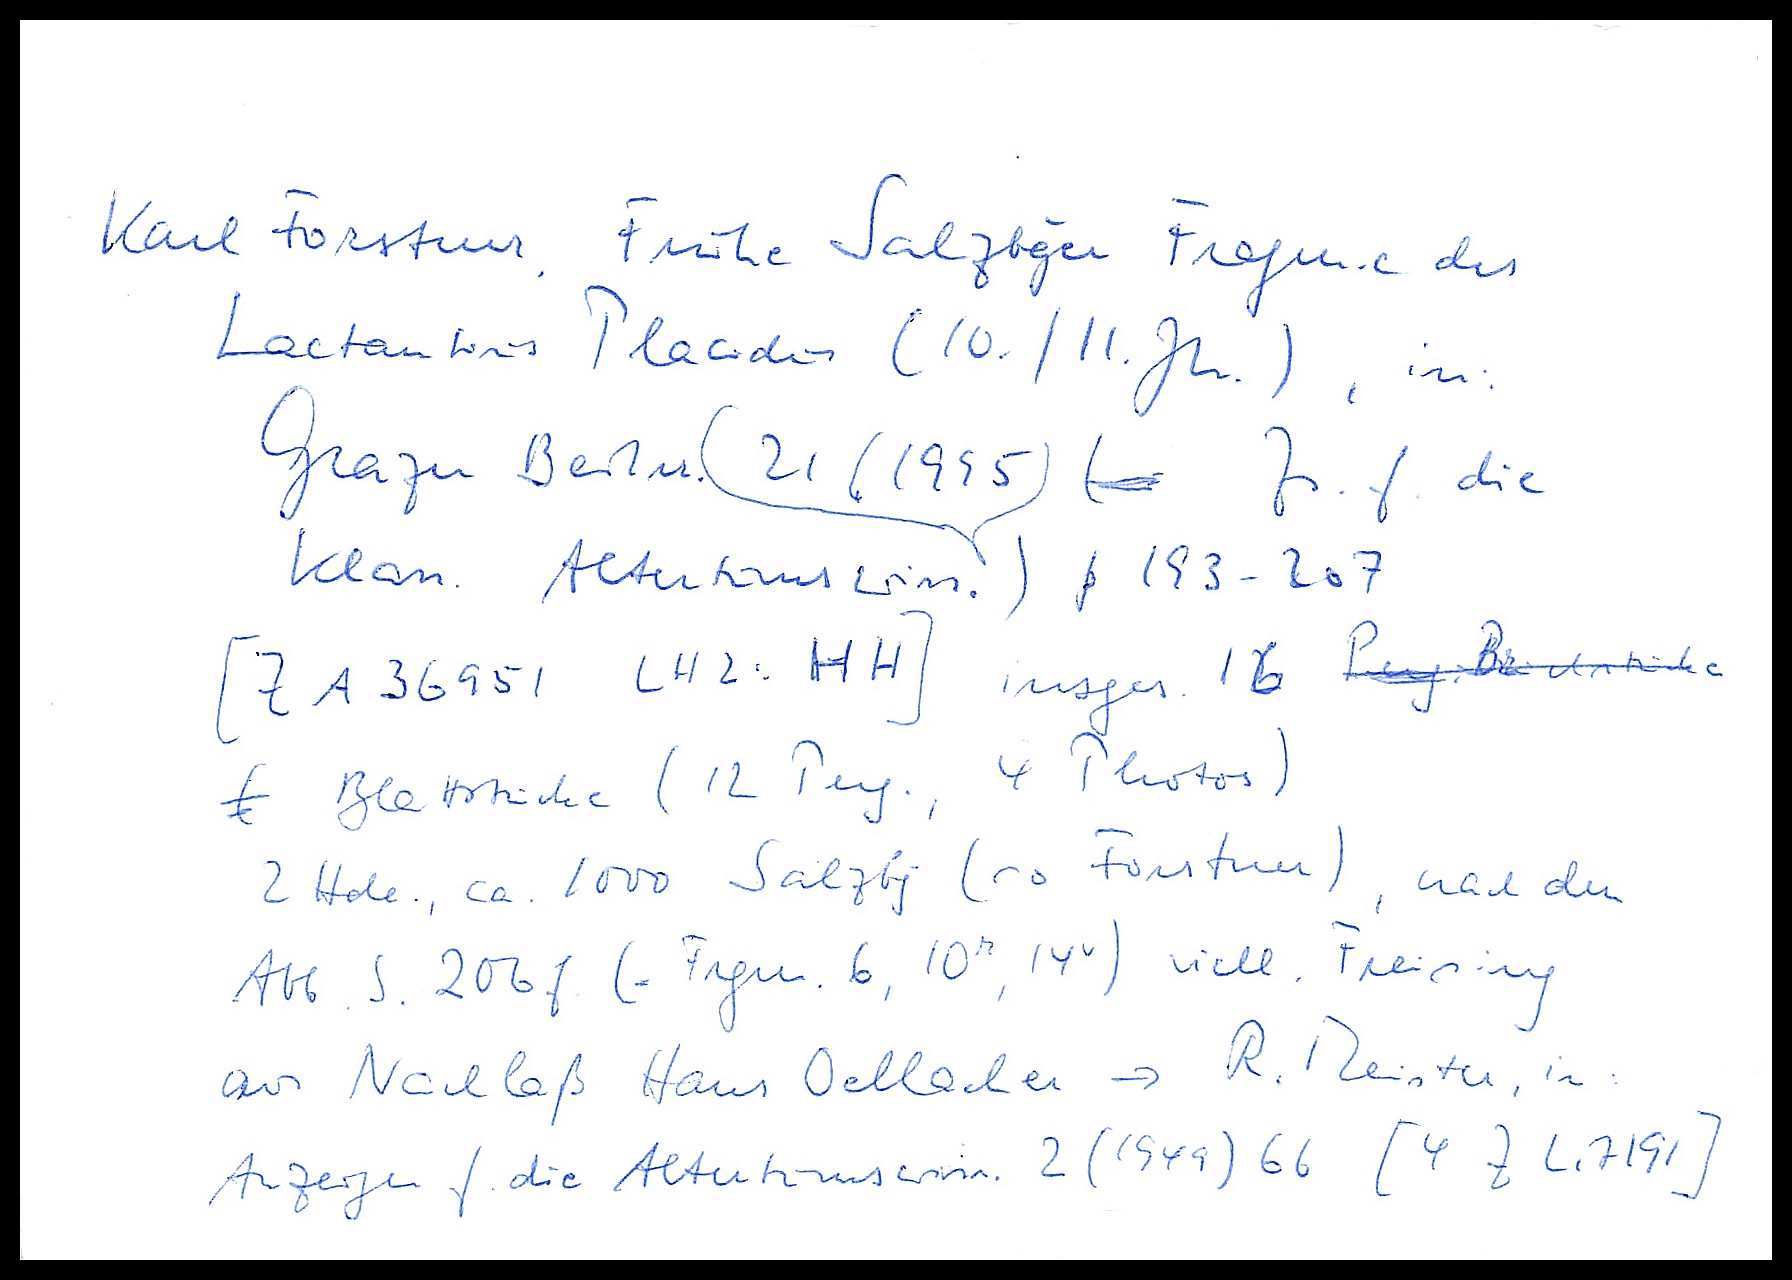 Karl Forstner, Frühe Salzbger Fragm.e des
Lactantius Placidus (10./11. Jh.), in:
Grazer Beitr. (21 (1995) (= Zs. f. die
Klass. Altertumswiss.) p 193-207
[Z A 36951 LH2: HH] insges. 16 Perg. Bruchstücke
Blattstücke (12 Perg., 4 Photos)
2 Hde., ca. 1000 Salzbg (so Forstner), nach den
Abb S. 206f (= Frgm. 6, 10r, 14v) viell. Freising
aus Nachlaß Hans Oellacher → R. Meister, in:
Anzeiger f. die Altertumswiss. 2 (1949) 66 [4 Z L.7191]